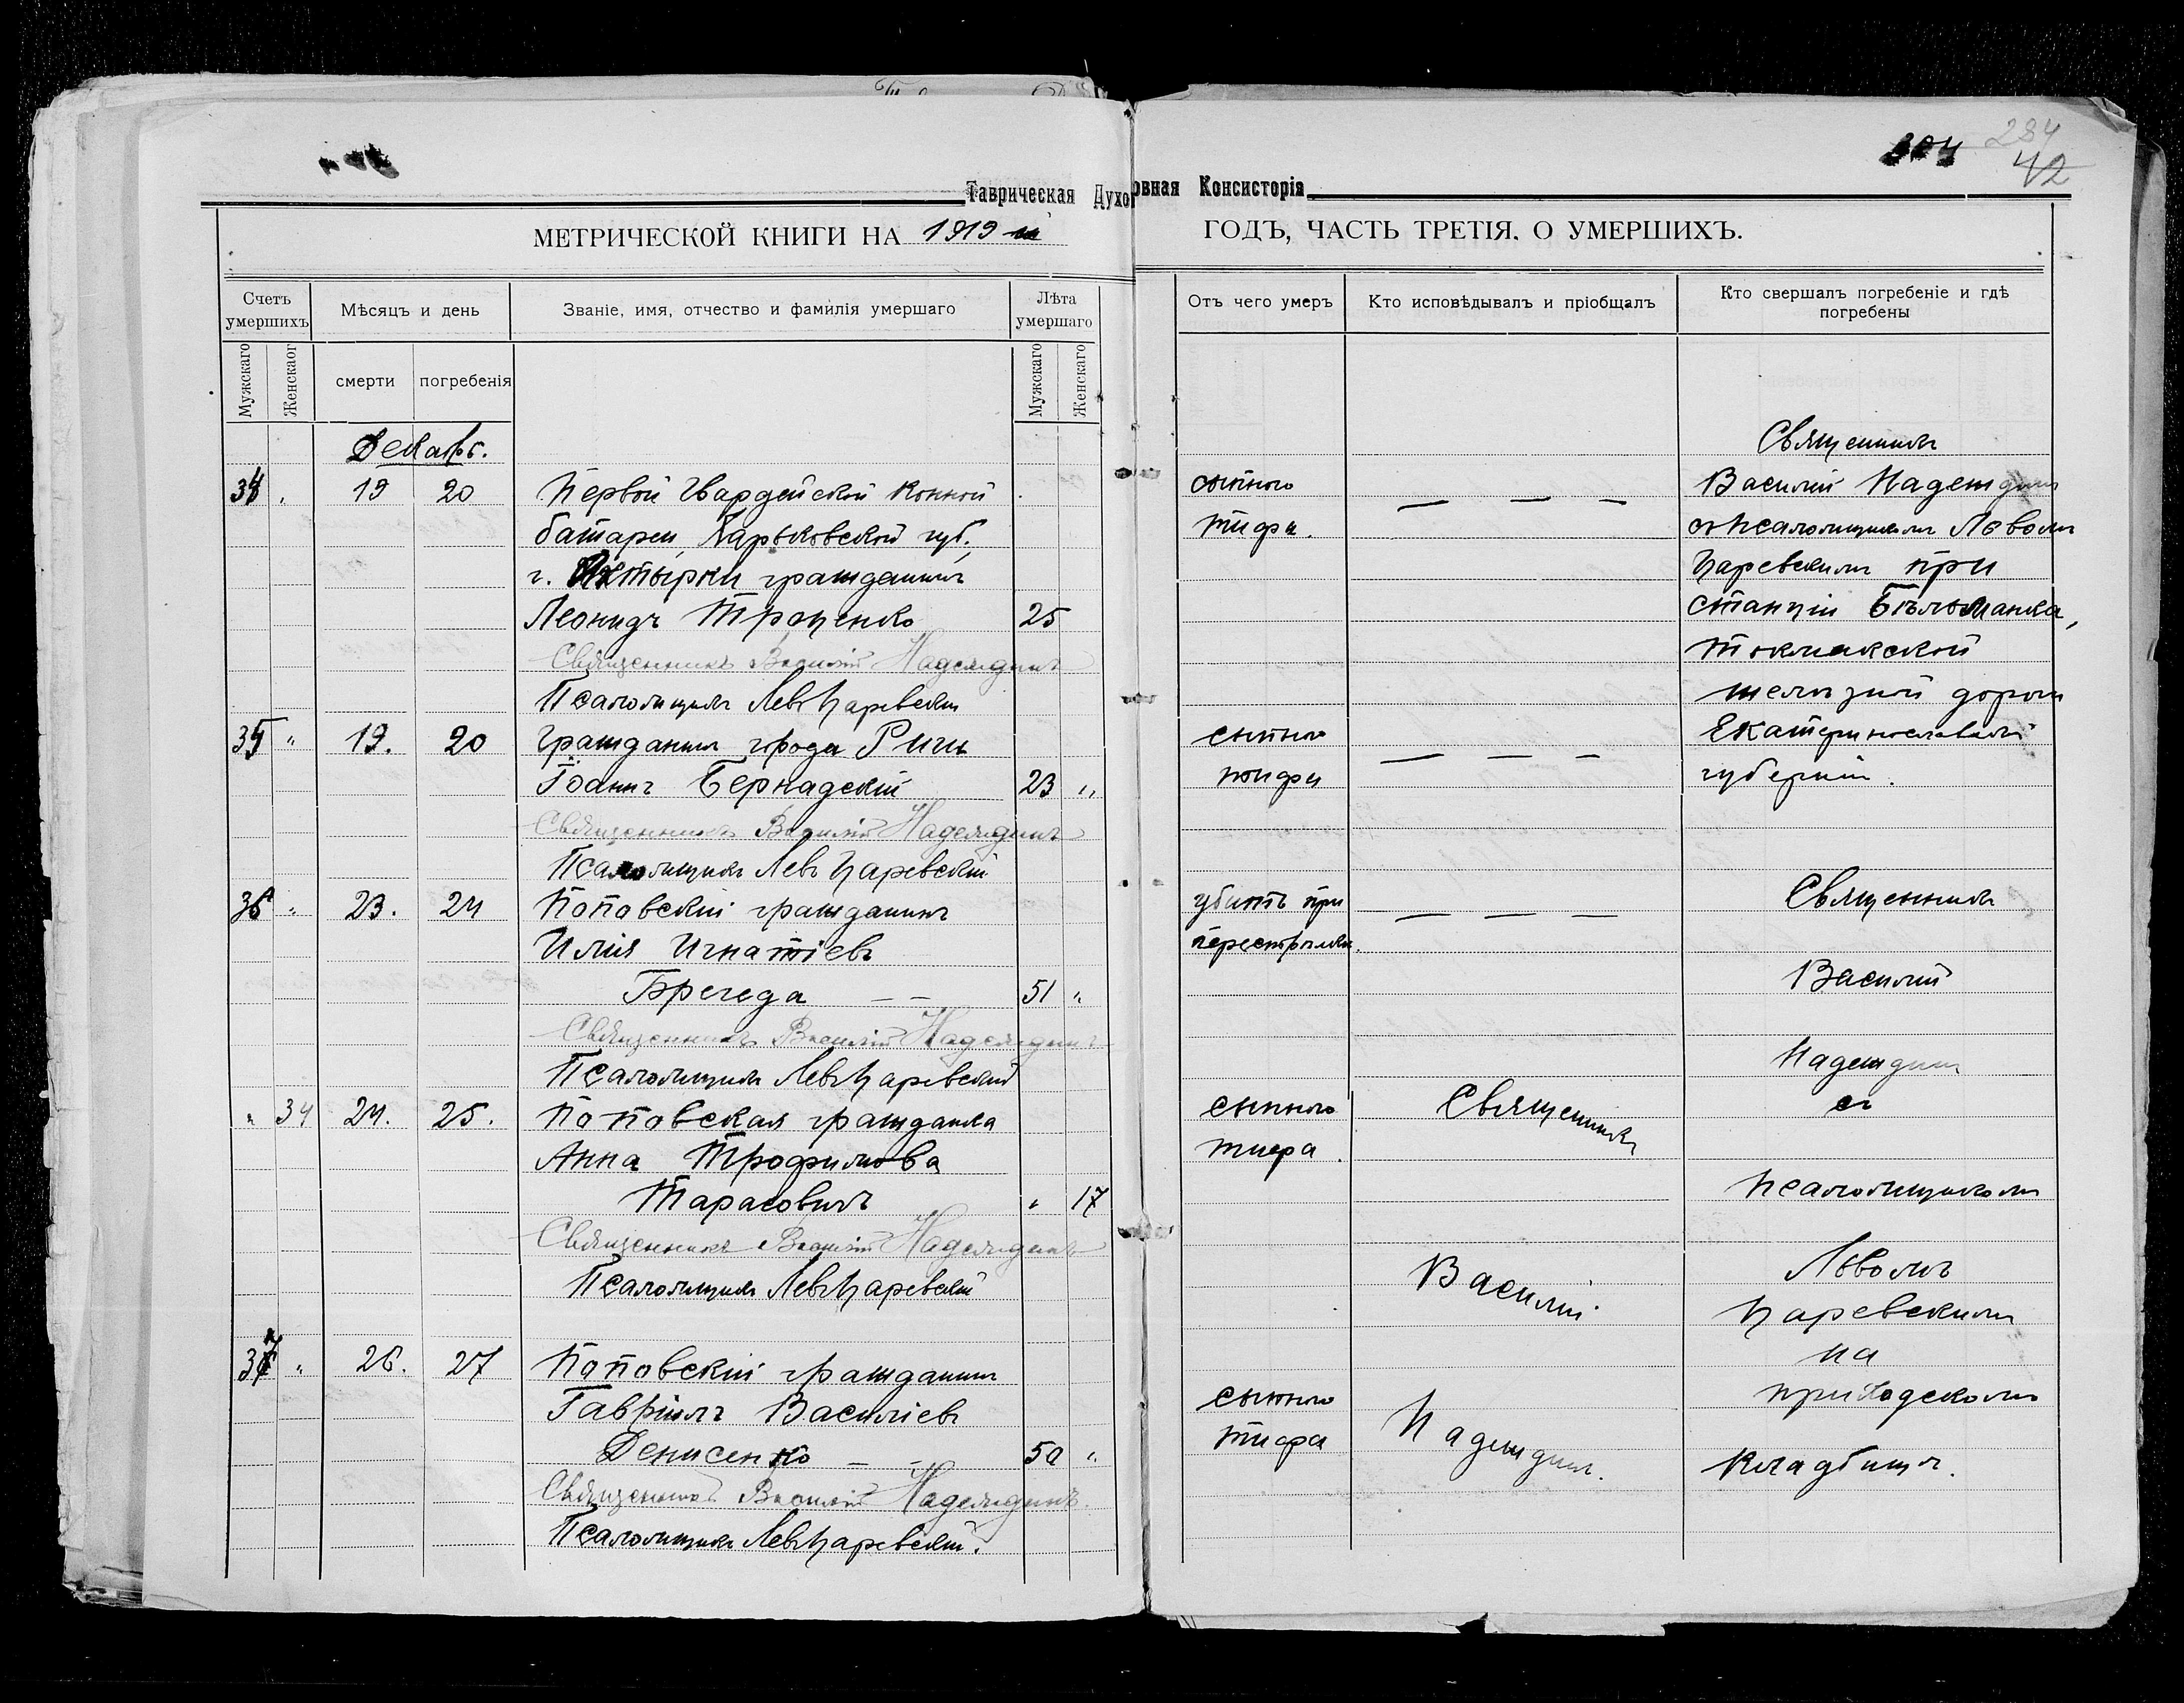 304 284
42
Таврическая Духовная Консисторія
МЕТРИЧЕСКОЙ КНИГИ НА 1919 й ГОДЪ, ЧАСТЬ ТРЕТІЯ. О УМЕРШИХЪ.
Счетъ умершихъ
Мѣсяцъ и день
Званіе, имя, отчество и фамилія умершаго
Лѣта умершаго
Мужскаго
Женскаог
смерти
погребенія
Мужскаго
Женскаго
Декабр.
34 " 19 20 Первой Гвардейской Конной
батареи, Харьковской губ.,
г. Ахтырки гражданинъ
Леонидъ Троценко 25
Священникъ Василій Надеждинъ
Псаломщикъ Левъ Царевскій
35 " 19. 20 Гражданинъ города Риги
Іоаннъ Бернадскій 23 "
Священникъ Василій Надеждинъ
Псаломщикъ Левъ Царевскій
36 " 23. 24 Поповскій гражданинъ
Илія Игнатіевъ
Брегеда — — 51 "
Священникъ Василій Надеждинъ
Псаломщикъ Левъ Царевскій
" 34 24. 25. Поповская гражданка
Анна Трофимова
Тарасовичъ " 17
Священникъ Василій Надеждинъ
Псаломщикъ Левъ Царевскій
37 " 26. 27 Поповскій гражданинъ
Гавріилъ Василіевъ
Денисенко — — 50 "
Священникъ Василій Надеждинъ.
Псаломщикъ Левъ Царевскій.
Отъ чего умеръ
Кто исповѣдывалъ и пріобщалъ
Кто свершалъ погребеніе и гдѣ
погребены
сыпного — — —
тифа.
сыпного — — —
тифа
убитъ при — — —
перестрѣлкѣ.
сыпного
тифа.
сыпного
тифа
Священникъ
Василій
Надеждинъ.
Священникъ
Василій Надеждинъ
съ псаломщикомъ Львомъ
Царевскимъ при
станціи Бѣльманка,
Токмакской
желѣзной дороги
Екатеринославской
губерніи.
Священникъ
Василій
Надеждинъ
съ
псаломщикомъ
Львомъ
Царевскимъ
на
приходскомъ
кладбищѣ.